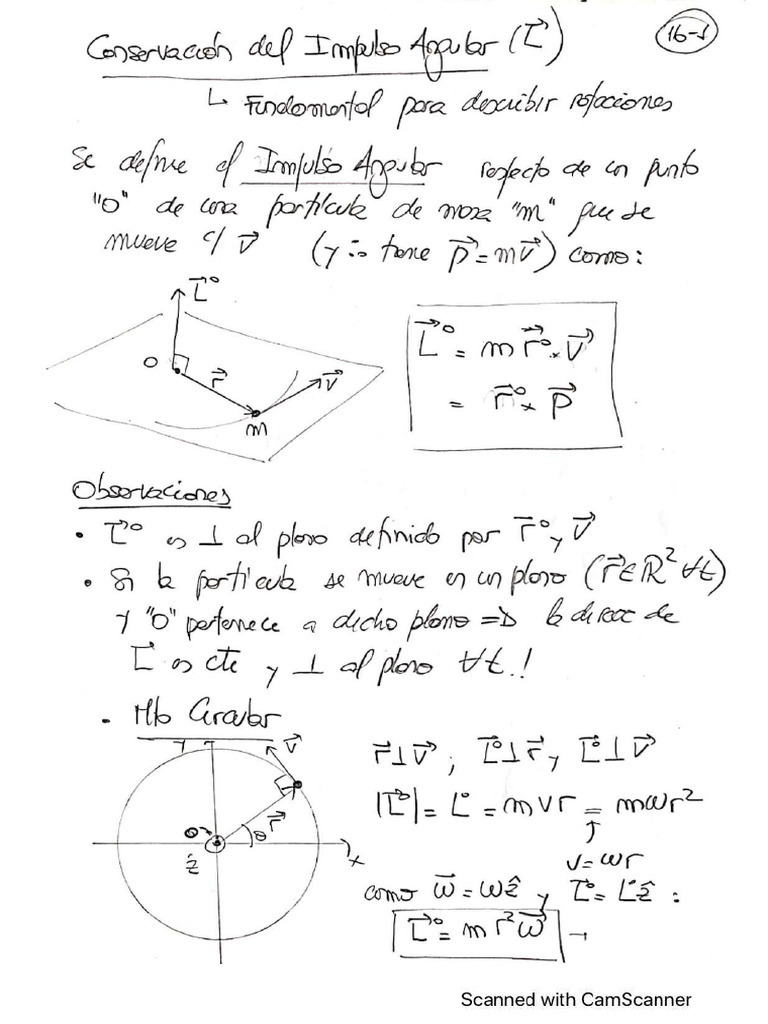 Conservación del Impulso Angular (L⃗)
16-1
↳ Fundamental para describir rotaciones
Se define el Impulso Angular respecto de un punto
"O" de una partícula de masa "m" que se
mueve c/ v⃗ (y ∴ tiene p⃗ = m v⃗) como:
L⃗°
O
r⃗
v⃗
m
L⃗° = m r⃗° × v⃗
= r⃗° × p⃗
Observaciones
• L⃗° es ⊥ al plano definido por r⃗° y v⃗
• Si la partícula se mueve en un plano (r⃗ ∈ ℝ² ∀t)
y "O" pertenece a dicho plano => la direcc de
L⃗ es cte y ⊥ al plano ∀t.!
• Mto Circular
y
v⃗
r⃗
θ
O
ẑ
x
r⃗ ⊥ v⃗ ; L⃗° ⊥ r⃗ y L⃗° ⊥ v⃗
|L⃗°| = L° = m v r = m ω r²
v = ωr
como ω⃗ = ω ẑ y L⃗° = L° ẑ :
L⃗° = m r² ω⃗ →
Scanned with CamScanner